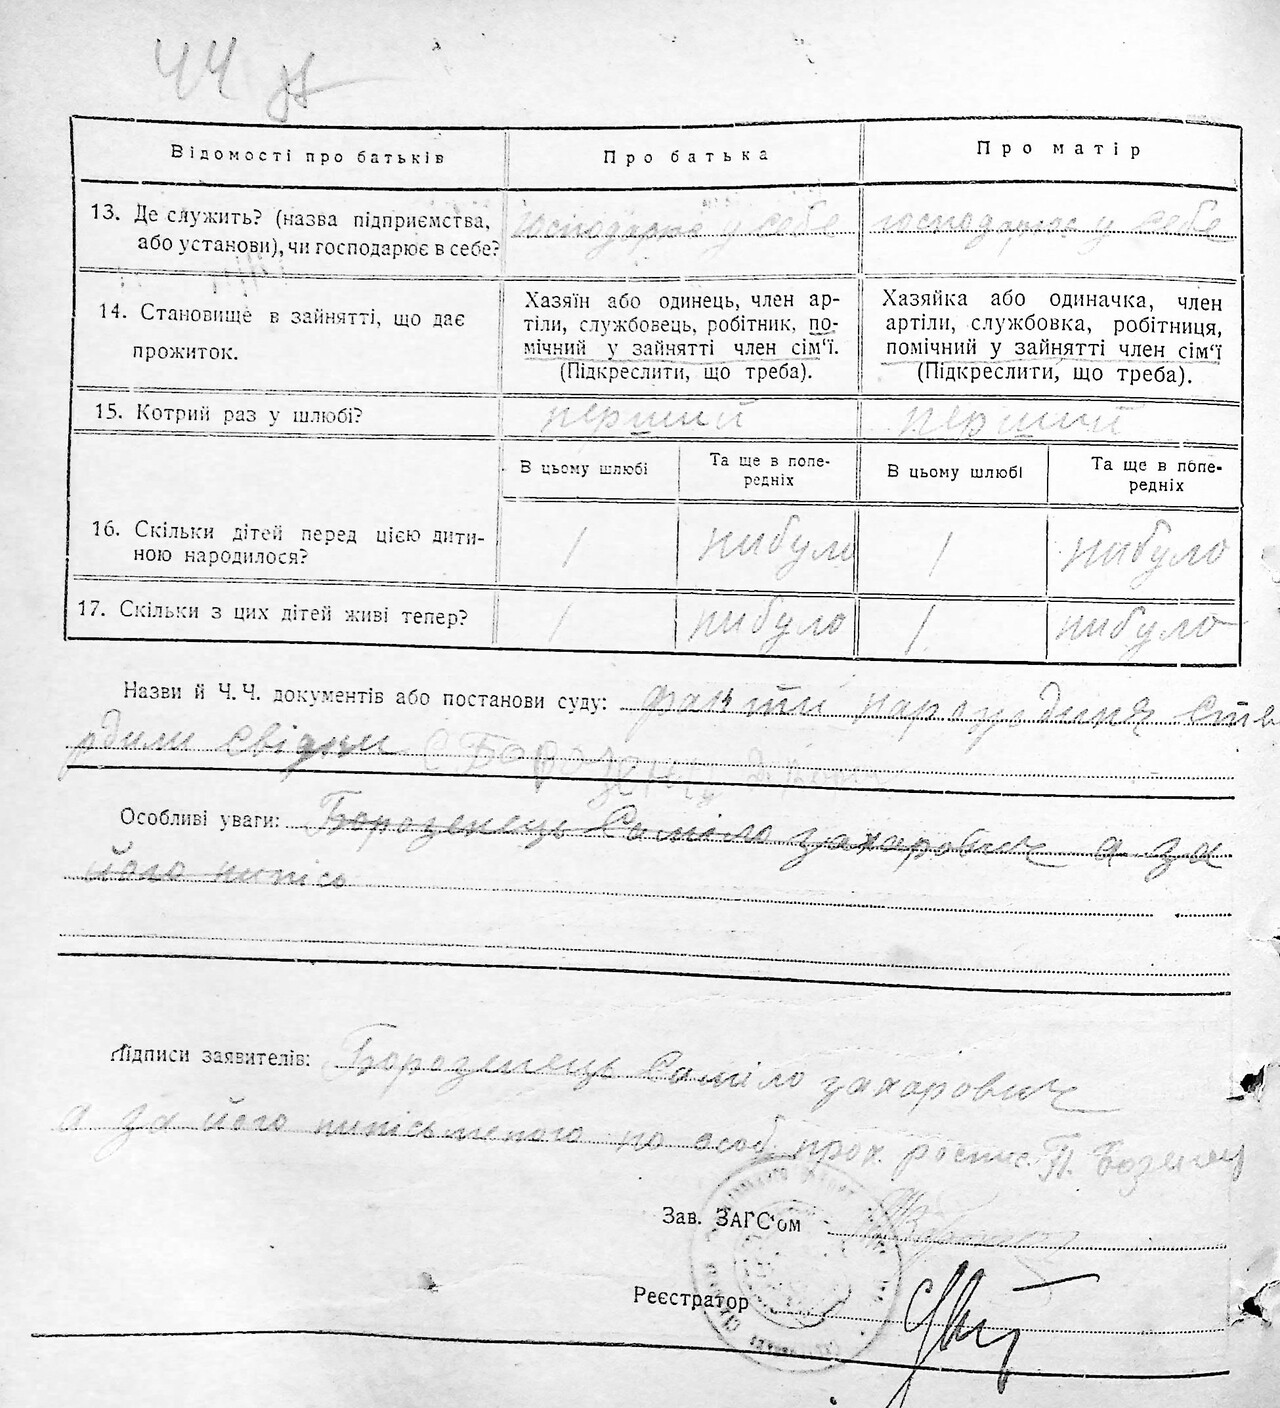 44
Відомості про батьків
Про батька
Про матір
13. Де служить? (назва підприємства,
або установи), чи господарює в себе?
господарює у себе
господарює у себе
14. Становище в зайнятті, що дає
прожиток.
Хазяїн або одинець, член ар-
тіли, службовець, робітник, по-
мічний у зайнятті член сім'ї.
(Підкреслити, що треба).
Хазяйка або одиначка, член
артіли, службовка, робітниця,
помічний у зайнятті член сім'ї
(Підкреслити, що треба).
15. Котрий раз у шлюбі?
перший
перший
В цьому шлюбі
Та ще в попе-
редніх
В цьому шлюбі
Та ще в попе-
редніх
16. Скільки дітей перед цією дити-
ною народилося?
1
нибуло
1
нибуло
17. Скільки з цих дітей живі тепер?
1
нибуло
1
нибуло
Назви й Ч.Ч. документів або постанови суду: народження ств
рдили свідки
Особливі уваги: Борозенець Саміло захарович а за
його
Підписи заявителів: Борозенець Саміло захарович
а за йогониписьменого по особ. прох. роспис. П.
Зав. ЗАГС'ом
Реєстратор